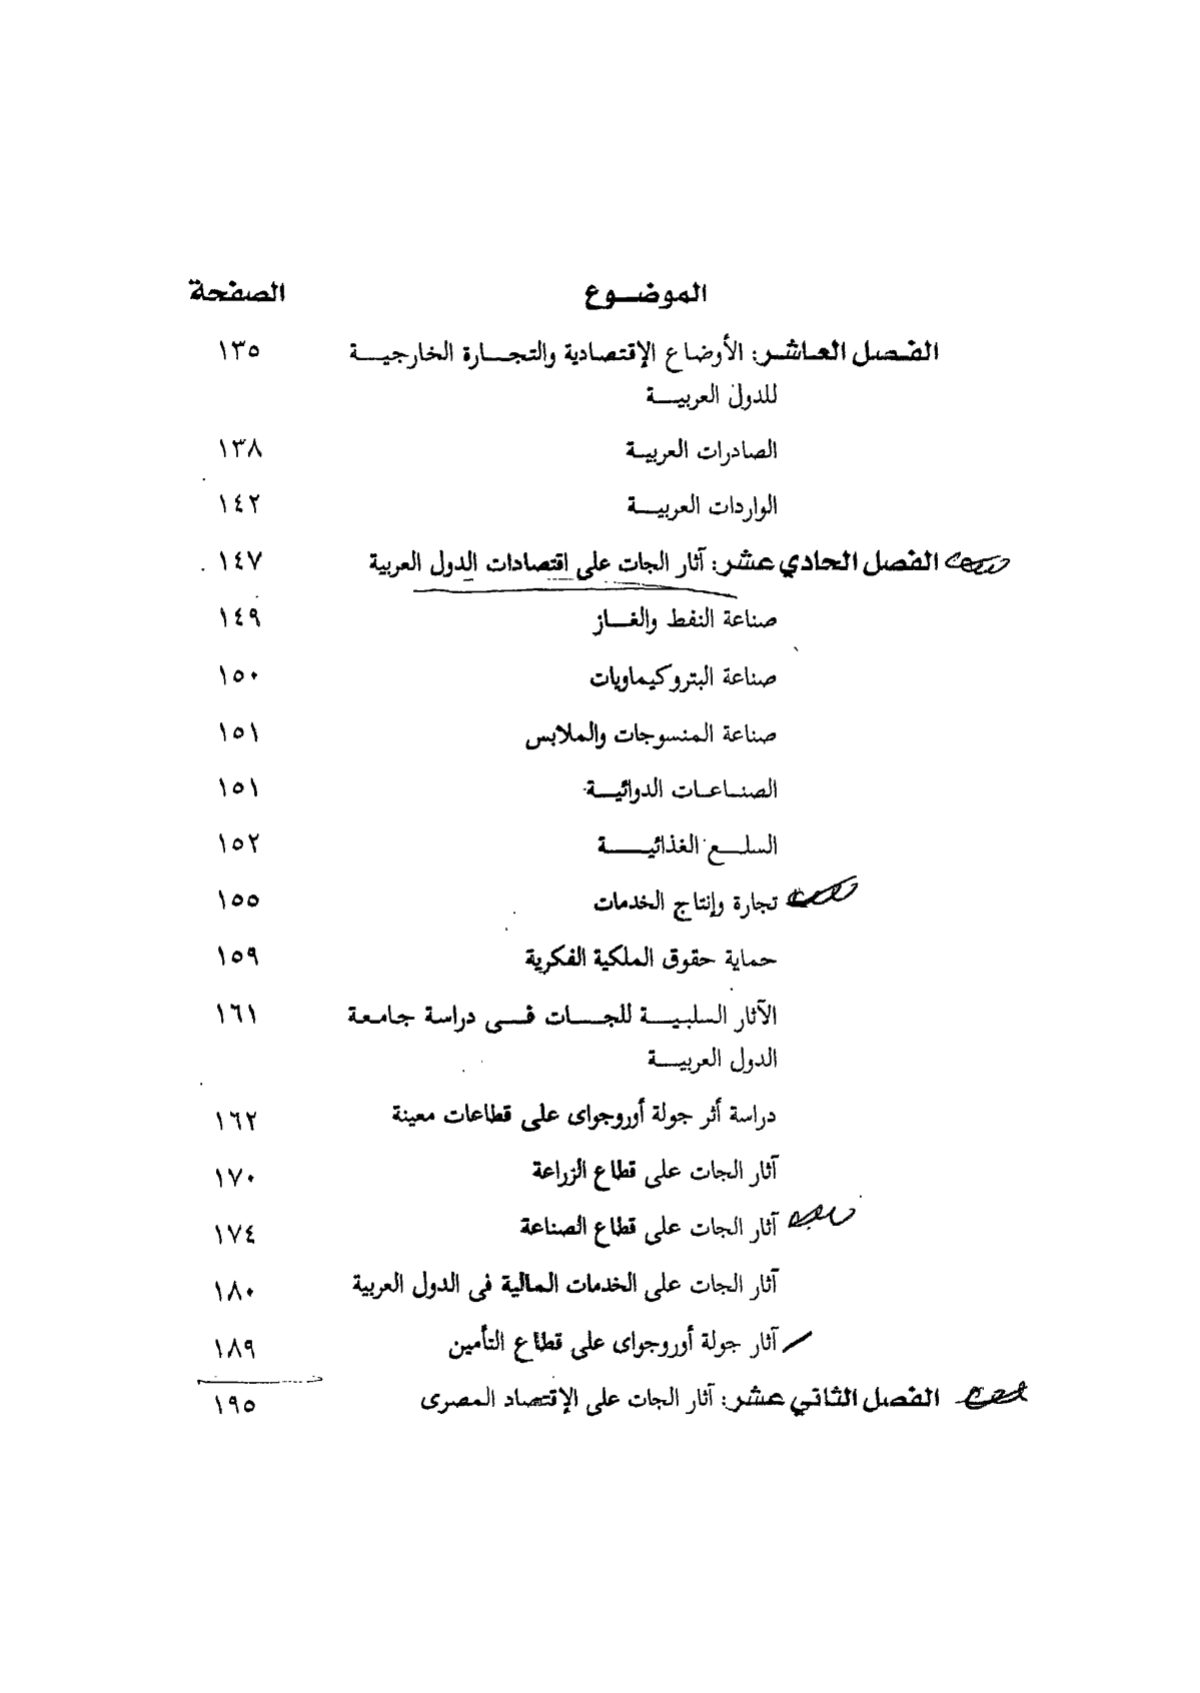 الموضـــوع الصفحة
الفـصـل العـاشـر: الأوضاع الإقتصادية والتجـــارة الخارجيـــة ١٣٥
للدول العربيـــة
الصادرات العربيـة ١٣٨
الواردات العربيـــة ١٤٢
الفصل الحادي عشر: آثار الجات على اقتصادات الدول العربية ١٤٧
صناعة النفط والغـــاز ١٤٩
صناعة البتروكيماويات ١٥٠
صناعة المنسوجات والملابس ١٥١
الصنـاعـات الدوائيـــة ١٥١
السلـــع الغذائيـــــة ١٥٢
تجارة وإنتاج الخدمات ١٥٥
حماية حقوق الملكية الفكرية ١٥٩
الآثار السلبيـــة للجـــات فـــى دراسة جامعة ١٦١
الدول العربيـــة
دراسة أثر جولة أوروجواى على قطاعات معينة ١٦٢
آثار الجات على قطاع الزراعة ١٧٠
آثار الجات على قطاع الصناعة ١٧٤
آثار الجات على الخدمات المالية فى الدول العربية ١٨٠
آثار جولة أوروجواى على قطاع التأمين ١٨٩
الفصل الثاني عشر: آثار الجات على الإقتصاد المصرى ١٩٥